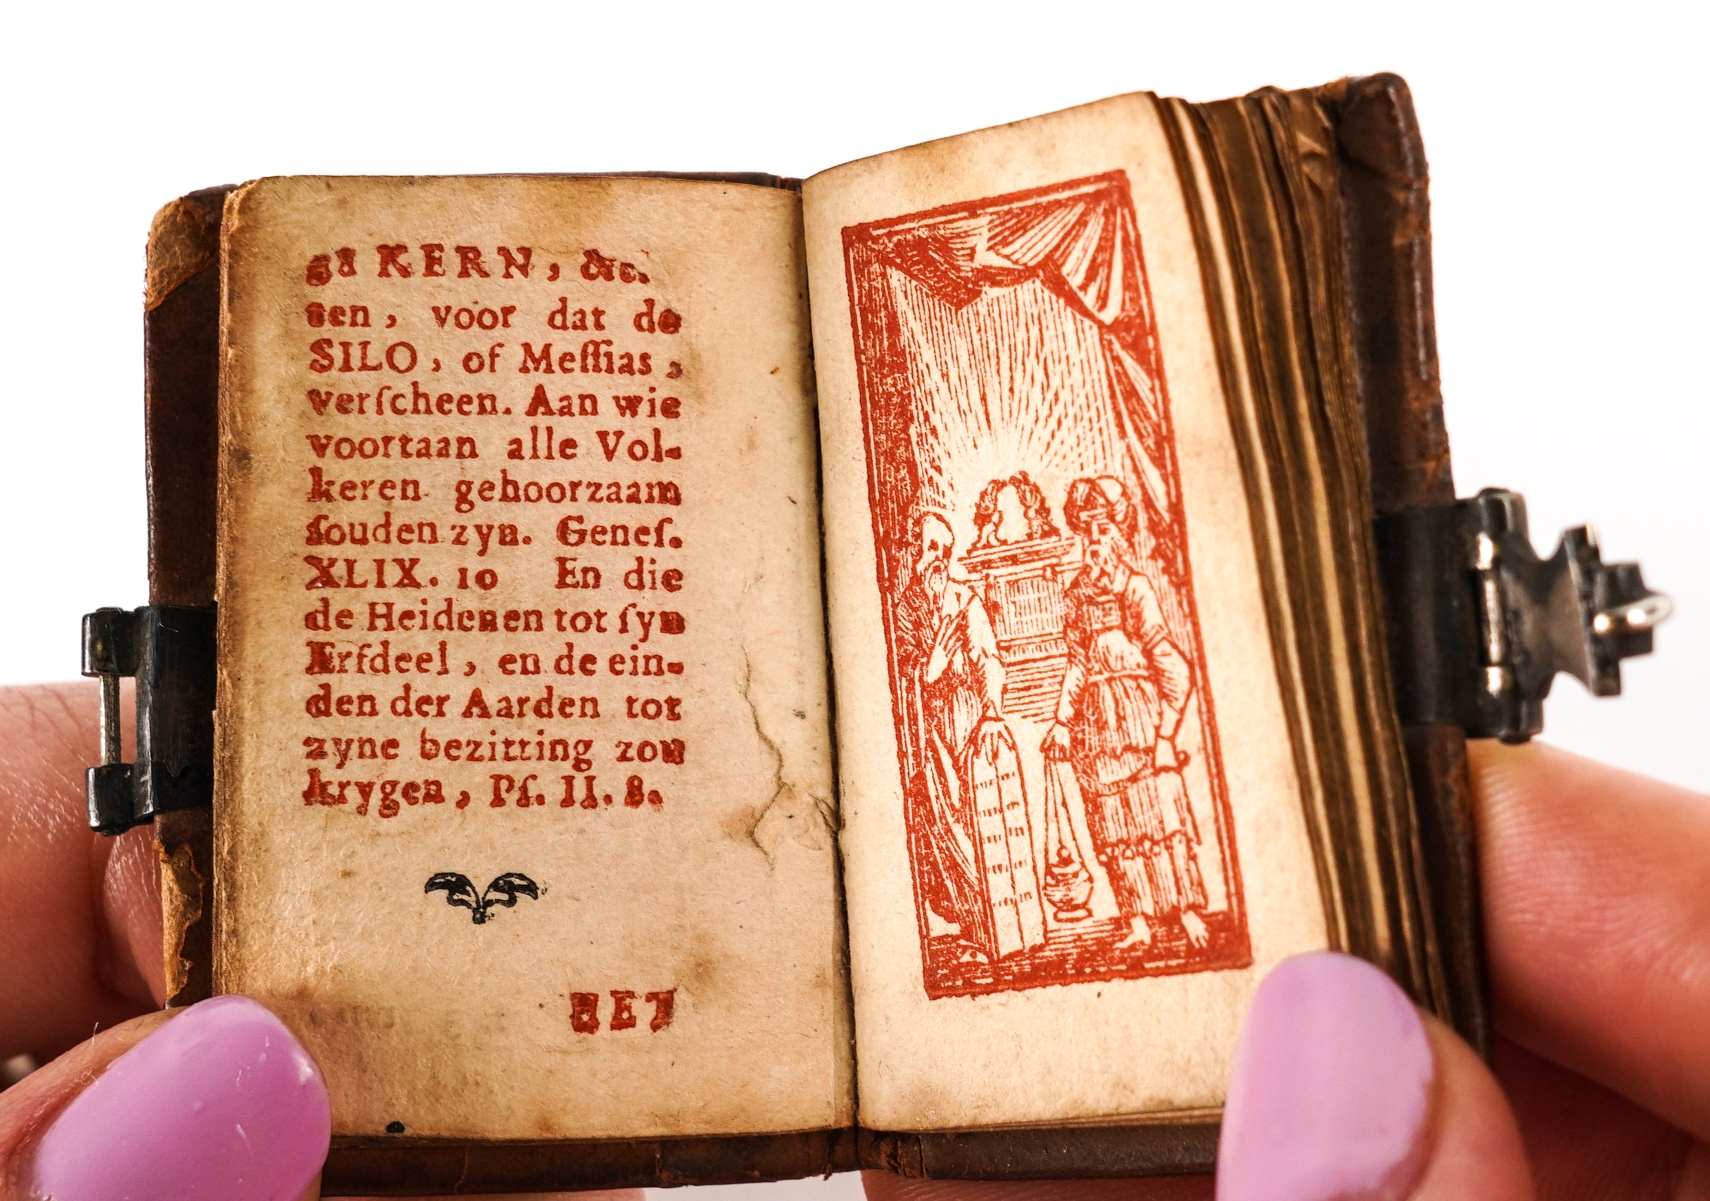 38 KERN, &c.
ten, voor dat de
SILO, of Meſſias,
verſcheen. Aan wie
voortaan alle Vol-
keren gehoorzaam
ſouden zyn. Geneſ.
XLIX. 10 En die
de Heidenen tot ſyn
Erfdeel, en de ein-
den der Aarden tot
zyne bezitting zou
krygen, Pſ. II. 8.
HET